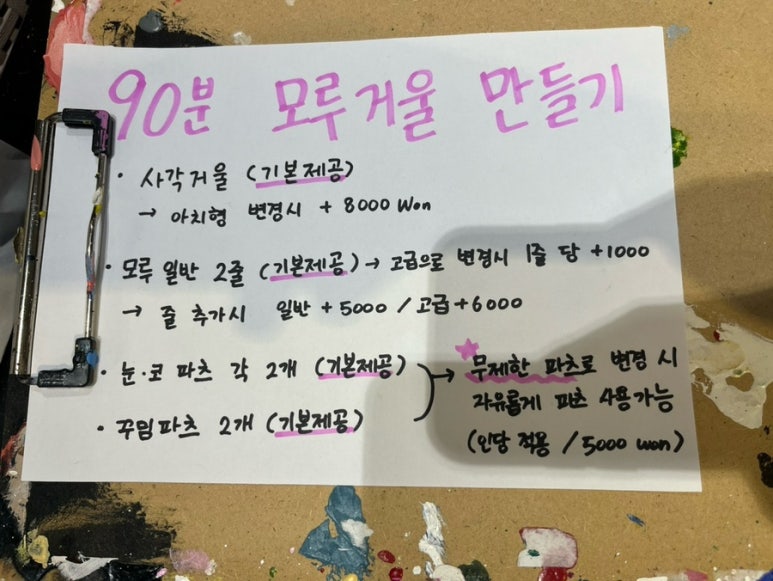 90분 모루거울 만들기
· 사각거울 (기본제공)
→ 아치형 변경시 + 8000 Won
· 모루 일반 2줄 (기본제공) → 고급으로 변경시 1줄 당 +1000
→ 줄 추가시 일반 + 5000 / 고급 + 6000
· 눈·코 파츠 각 2개 (기본제공)
· 꾸밈파츠 2개 (기본제공)
→ 무제한 파츠로 변경 시
자유롭게 파츠 사용가능
(인당 적용 / 5000 won)